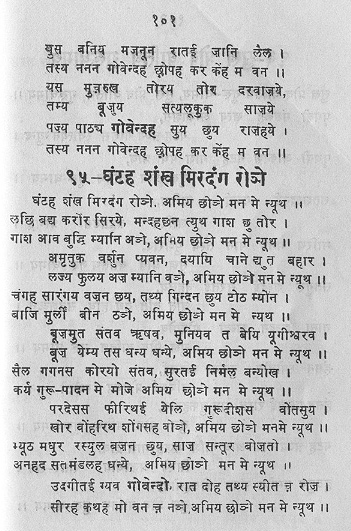 १०१
खुस बनिय मजनून रातई जानि लैल ।
तस्य ननन गोवेन्दह छोपह कर केंह म वन ।।
यस मुन्नरुख तोरय तोर दरवाज़ये,
तम्य बूज़ुय सत्यलूकुक साज़ये
पज़्य पाठ्य गोवेन्दह सुय छुय राज़हये ।
तस्य ननन गोवेन्दह छोपह कर केंह म वन ।।
९५–घंटह शंख मिरदंग रोञे
घंटह शंख मिरदंग रोञे. अमिय छोञे मन मे न्यूथ ।।
लछि बद्य करोर सिरये, मन्दहछन त्युथ गाश छु तोर ।
गाश आव बुद्धि म्यानि अञे, अमिय छोञे मन मे न्यूथ ।।
अमृतुक वर्शुन प्यवन, दयायि चानेद्युत बहार ।
लज्य फुलय अज़ म्यानि वञे, अमिय छोञे मन मे न्यूथ ।।
चंगह सारंगय वज़न छय, तथ्य गिन्दन छुय टोठ म्योन ।
बाजि मुर्ली बीन ठञे, अमिय छोञे मन मे न्यूथ ।।
बूज़मुत संतव ऋषव, मुनियव त बेयि यूगीश्वरव ।
बूज़ येम्य तस धन्य धन्ये, अमिय छोञे मन मे न्यूथ ।।
सैल गगनस कोरयो संतव, सुरतई निर्मल बन्योख ।
कर्य गुरू-पादन मे मोजे अमिय छोञे मन मे न्यूथ ।।
परदेसस फीरिथई येलि गुरूदीशस वोतसुय ।
खोर वोंहरिथ शोंगसह वोञे. अमिय छोञे मनमे न्यूथ ।।
म्यूठ मधुर रस्युल वज़न छुय, साज़ सन्तूर बोज़तो ।
अनहद सतमंडलह घन्ये, अमिय छोञे मन मे न्यूथ ।।
उदगीतई ग्यव गोवेन्दो, रात दोह तथ्य स्योत न्न रोज़ ।
सीरह कुथह मो वन न्न नञे.अमिय छोञे मन मे न्यूथ ।।